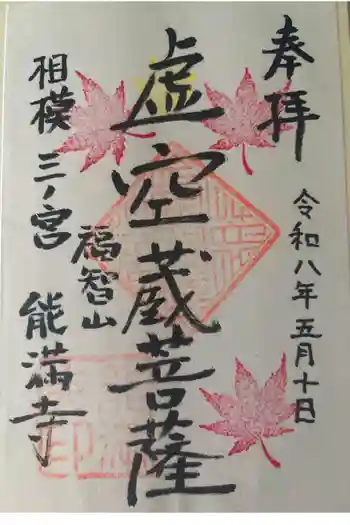 奉拝
令和八年五月十日
虚空蔵菩薩
福智山
相模三ノ宮
能満寺